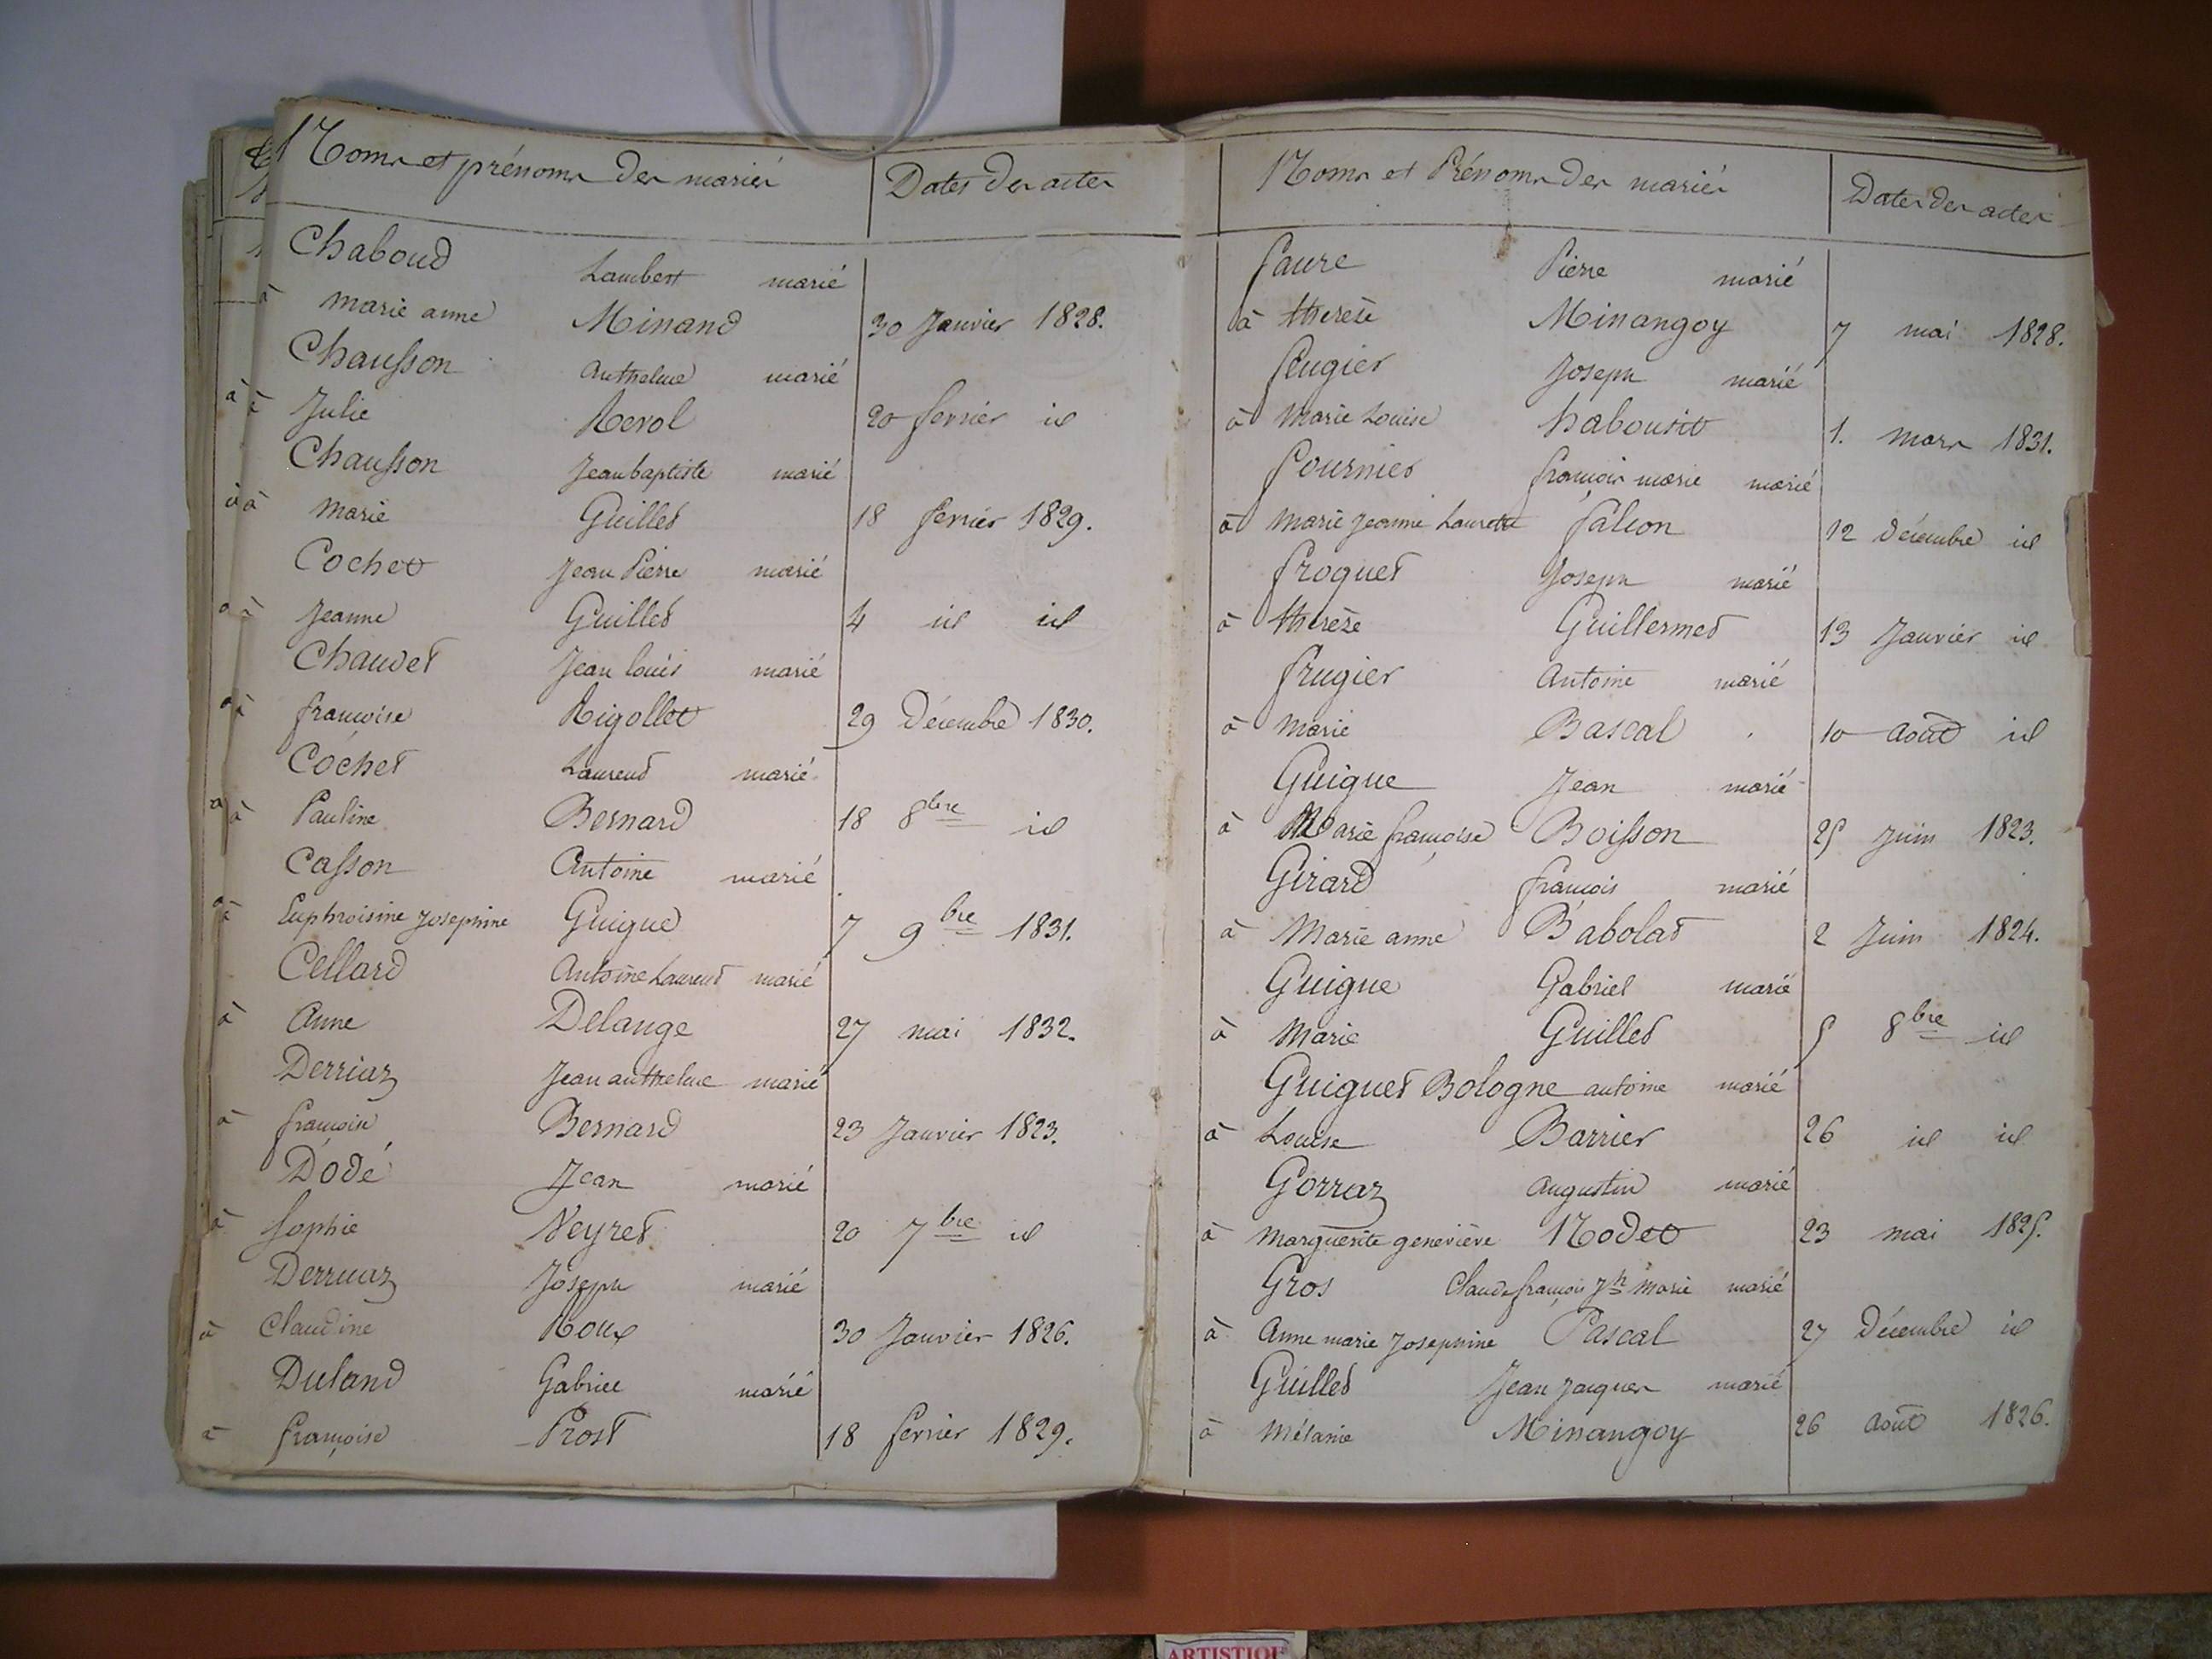 Noms et prénoms des mariés Dates des actes
Chaboud Lambert marié
à marie anne Minand 30 Janvier 1828.
Chausson Anthelme marié
à Julie Revol 20 fevrier id
Chausson Jean baptiste marié
à marie Guillet 18 fevrier 1829.
Cochet Jean Pierre marié
à Jeanne Guillet 4 id id
Chaudet Jean louis marié
à françoise Rigollet 29 Décembre 1830.
Cochet Laurend marié
à Pauline Bernard 18 8bre id
Casson Antoine marié
à Euphroisine Josephine Guigue 7 9bre 1831.
Cellard Antoine Laurend marié
à Anne Delange 27 mai 1832.
Derriaz Jean anthelme marié
à françoise Bernard 23 Janvier 1823.
Dodé Jean marié
à Sophie Neyret 20 7bre id
Derruaz Joseph marié
à Claudine Roux 30 Janvier 1826.
Duland Gabriel marié
à françoise Prost 18 fevrier 1829.
Noms et Prénoms des mariés Dates des actes
faure Pierre marié
à therese Minangoy 7 mai 1828.
feugier Joseph marié
à Marie Louise habousit 1. mars 1831.
fournier françois marie marié
à Marie Jeanne Laurette falcon 12 Décembre id
froquet Joseph marié
à thérèse Guillermet 13 Janvier id
frugier Antoine marié
à Marie Bascal 10 août id
Guigue Jean marié
à Marie françoise Boisson 25 Juin 1823.
Girard françois marié
à Marie anne Babolat 2 Juin 1824.
Guigue Gabriel marié
à Marie Guillet 5 8bre id
Guiguet Bologne antoine marié
à Louise Barrier 26 id id
Gorraz augustin marié
à Marguerite geneviève Nodet 23 mai 1825.
Gros Claude françois Jh Marie marié
à Anne marie Josephine Pascal 27 Décembre id
Guillet Jean Jacques marié
à Mélanie Minangoy 26 Août 1826.
ARTISTIQUE